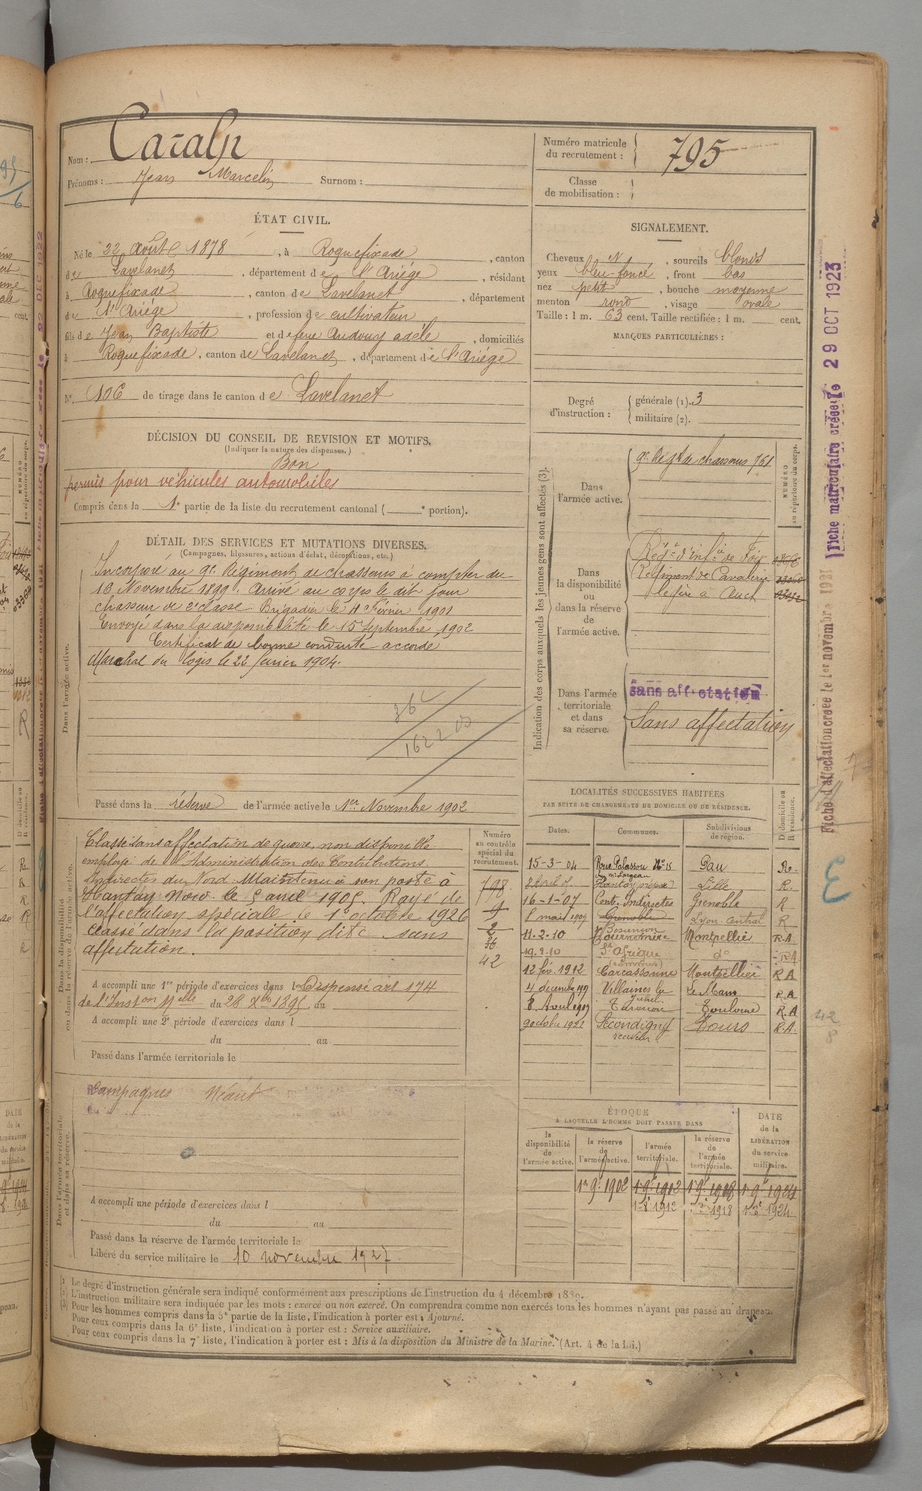 Nom : Caralp
Prénoms : Jean Marcelin Surnom :
Numéro matricule du recrutement : 795
Classe de mobilisation :
ÉTAT CIVIL.
Né le 22 Août 1878, à Roquefixade, canton
de Lavelanet, département de l'Ariége, résidant
à Roquefixade, canton de Lavelanet, département
de l'Ariége, profession de cultivateur
fils de Jean Baptiste et de feue Audouy adèle, domiciliés
à Roquefixade, canton de Lavelanet, département de l'Ariége
N° 106 de tirage dans le canton de Lavelanet
SIGNALEMENT.
Cheveux N, sourcils blonds
yeux bleu foncé, front bas
nez petit, bouche moyenne
menton rond, visage ovale
Taille : 1 m. 63 cent. Taille rectifiée : 1 m. cent.
MARQUES PARTICULIÈRES :
Degré d'instruction : générale (1). 3
militaire (2).
DÉCISION DU CONSEIL DE REVISION ET MOTIFS.
(Indiquer la nature des dispenses.)
Bon
permis pour véhicules automobiles
Compris dans la 1e partie de la liste du recrutement cantonal ( portion).
DÉTAIL DES SERVICES ET MUTATIONS DIVERSES.
(Campagnes, blessures, actions d'éclat, décorations, etc.)
Dans l'armée active.
Incorporé au 9e Régiment de chasseurs à compter du
16 Novembre 1899. Arrivé au corps le dit jour
chasseur de 2e classe Brigadier le 11 Février 1901
Envoyé dans la disponibilité le 15 Septembre 1902
Certificat de bonne conduite accordé
Marchal du logis le 22 Janvier 1904.
Passé dans la réserve de l'armée active le 1er Novembre 1902
Indication des corps auxquels les jeunes gens sont affectés (3).
NUMÉRO au répertoire du corps.
Dans l'armée active.
9e Régt de chasseurs 761
Dans la disponibilité ou dans la réserve de l'armée active.
Régt d'infie de Foix
Régiment de Cavalerie
légère à Auch
Dans l'armée territoriale et dans sa réserve.
sans affectation
Sans affectation
Classé sans affectation de guerre, non disponible
employé de l'Administration des Contributions
Indirectes du Nord. Maintenu à son poste à
Nantay Nord le 5 avril 1905. Rayé de
l'affectation spéciale le 1er octobre 1926
classé dans la position dite sans
affectation.
Numéro au contrôle spécial du recrutement.
42
A accompli une 1re période d'exercices dans l Dispensé art 174
de l'Inst on Mlle du 28 Xbre 1895 au
A accompli une 2e période d'exercices dans l
du au
Passé dans l'armée territoriale le
Campagnes Néant
A accompli une période d'exercices dans l
du au
Passé dans la réserve de l'armée territoriale le
Libéré du service militaire le 10 novembre 1927.
LOCALITÉS SUCCESSIVES HABITÉES
PAR SUITE DE CHANGEMENTS DE DOMICILE OU DE RÉSIDENCE.
Dates. Communes. Subdivisions de région. D. domicile ou R. résidence.
15-3-04 Pau Re.
Lille R.
16-1-07 Cont. Indirectes Grenoble R
8 mai 1909 Besançon R
11-2-10 Montpellier R.A.
12 fév. 1912 Carcassonne Montpellier R.A
4 décembre 1919 Villaines la Juhel Le Mans R.A
Toulouse R.A
9 octobre 1922 Secondigny Tours R.A.
ÉPOQUE
A LAQUELLE L'HOMME DOIT PASSER DANS
la disponibilité de l'armée active. la réserve de l'armée active. l'armée territoriale. la réserve de l'armée territoriale. DATE de la LIBÉRATION du service militaire.
1er 9e 1902 1er 9e 1912 1er 9e 1918 1er 9e 1924
(1) Le degré d'instruction générale sera indiqué conformément aux prescriptions de l'instruction du 4 décembre 1889.
(2) L'instruction militaire sera indiquée par les mots : exercé ou non exercé. On comprendra comme non exercés tous les hommes n'ayant pas passé au drapeau.
(3) Pour les hommes compris dans la 5e partie de la liste, l'indication à porter est : Ajourné.
Pour ceux compris dans la 6e liste, l'indication à porter est : Service auxiliaire.
Pour ceux compris dans la 7e liste, l'indication à porter est : Mis à la disposition du Ministre de la Marine. (Art. 4 de la Loi.)
Fiche matriculaire créée le 29 OCT 1923
Fiche d'affectation créée le 1er novembre 1921